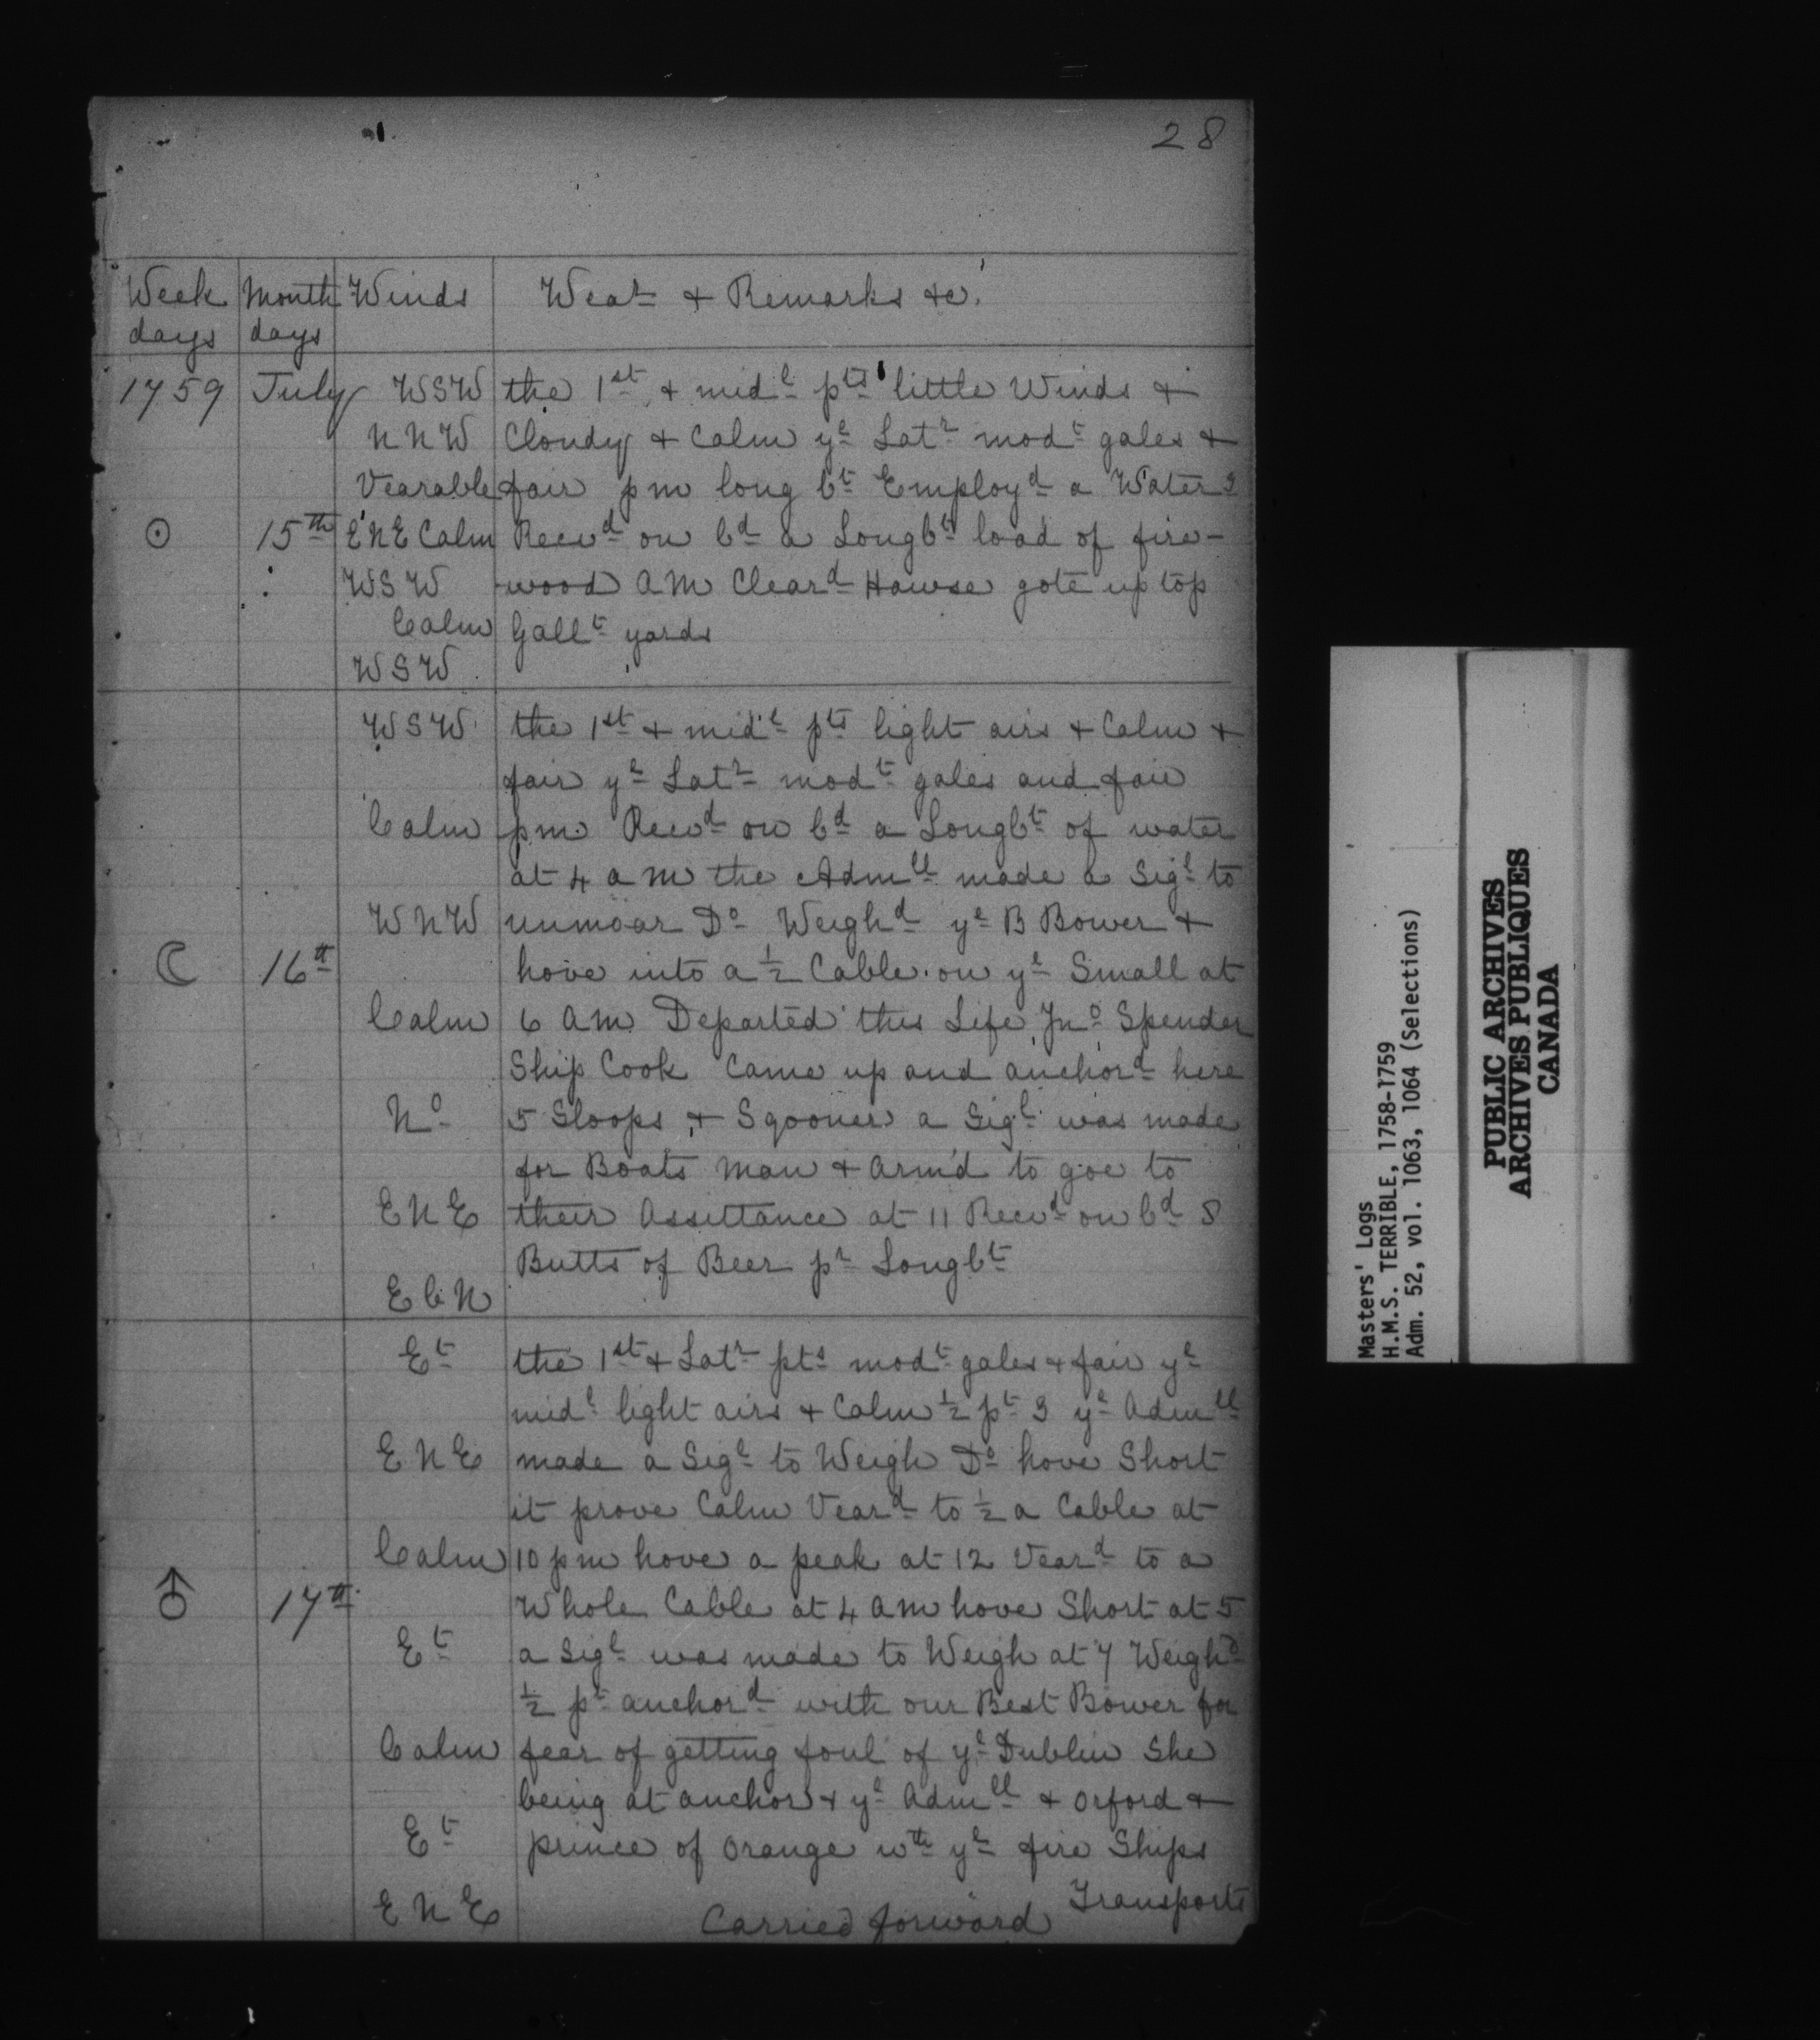 28
Week days | Month days | Winds | Wear & Remarks &c.
1759 July WSW the 1st & midl pts little Winds &
NNW Cloudy & Calm ye Latr modt gales &
Vearable fair pm long bt Employd a Water g
☉ 15th ENE Calm Recvd on bd a Longbt load of fire-
WSW wood AM Cleard Hawse gote up top
Calm Gallt yards
WSW
WSW the 1st & midl pts light airs & Calm &
fair ye Latr modt gales and fair
Calm pm Recvd on bd a Longbt of water
at 4 am the Admll made a Sigl to
WNW unmoar Do Weighd ye B Bower &
☾ 16th hove into a ½ Cable on ye Small at
Calm 6 AM Departed this Life Jno Spender
Ship Cook Came up and anchord here
No 5 Sloops & Sgooner a Sigl was made
for Boats Man & Arm'd to goe to
ENE their Assittance at 11 Recvd on bd 8
Butts of Beer pr Longbt
E b N
Et the 1st & Latr pts modt gales & fair ye
midl light airs & Calm ½ pt 3 ye Admll
ENE made a Sigl to Weigh Do hove Short
it prove Calm Veard to ½ a Cable at
Calm 10 pm hove a peak at 12 Veard to a
♂ 17th Whole Cable at 4 AM hove Short at 5
Et a Sigl was made to Weigh at 7 Weighd
½ pt anchord with our Best Bower for
Calm fear of getting foul of ye Dublin She
being at anchor & ye Admll & Orford &
Et prince of Orange wth ye fire Ships
ENE Transports
Carried forward
Masters' Logs
H.M.S. TERRIBLE, 1758-1759
Adm. 52, vol. 1063, 1064 (Selections)
PUBLIC ARCHIVES
ARCHIVES PUBLIQUES
CANADA